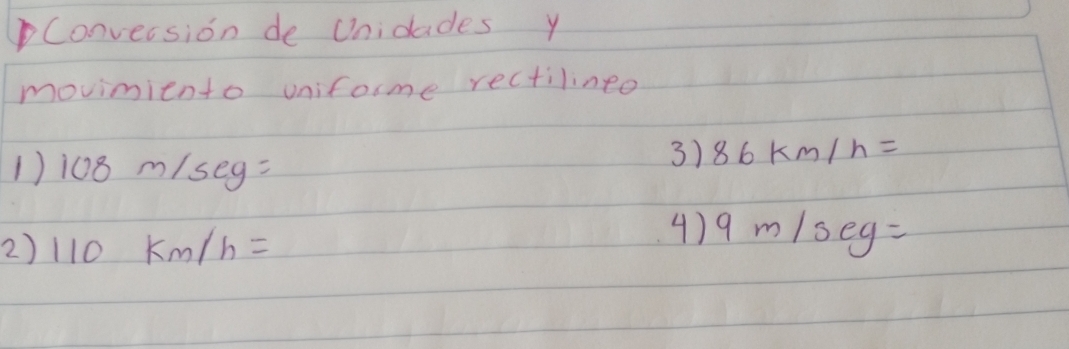 Conversión de Unidades y
movimiento uniforme rectilineo
1) 108 m/seg=
3) 86 Km/h=
2) 110 Km/h=
4) 9 m/seg=